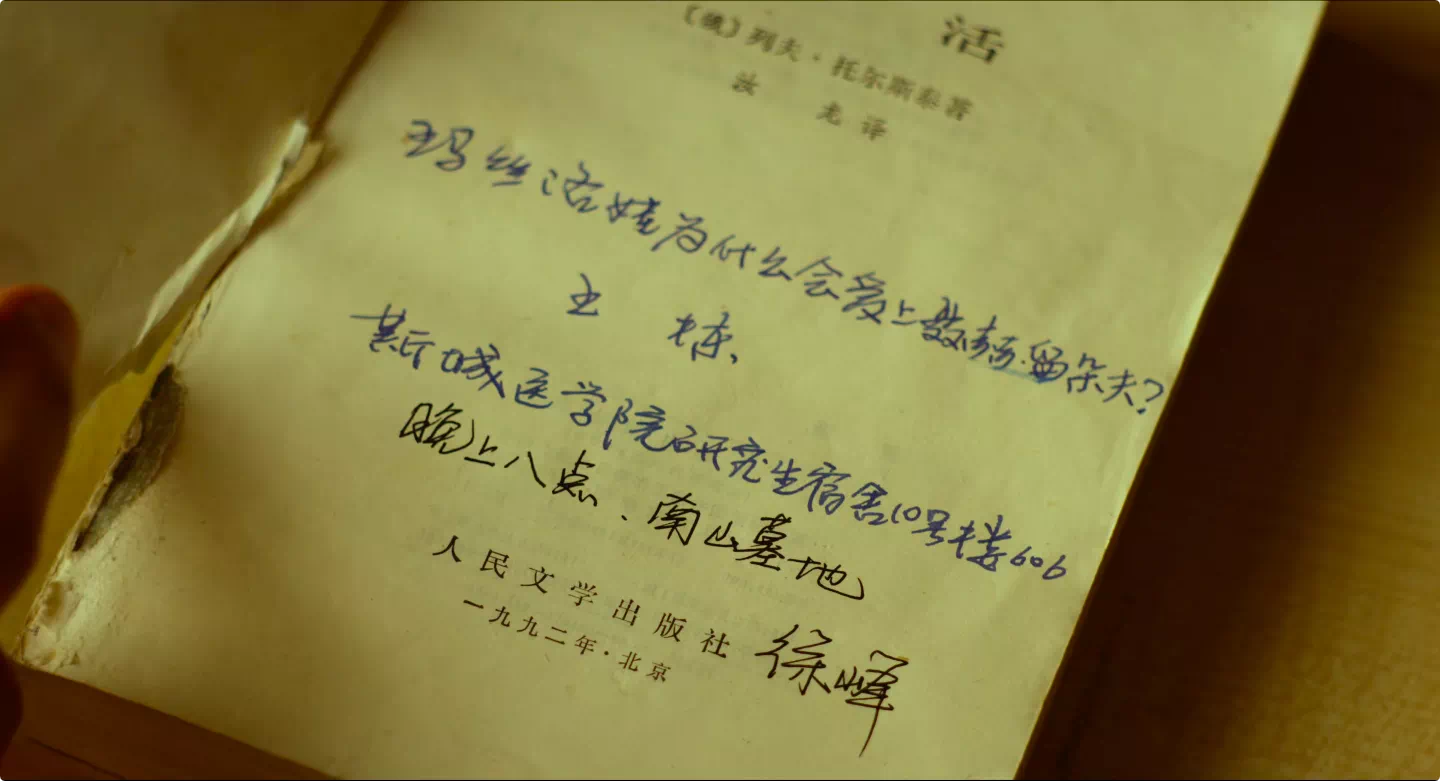 活
〔俄〕列夫·托尔斯泰著
汝 龙 译
玛丝洛娃为什么会爱上聂赫留朵夫?
王 栋、
新城医学院研究生宿舍10号楼606
晚上八点、南山墓地
人民文学出版社
徐峰
一九九二年·北京